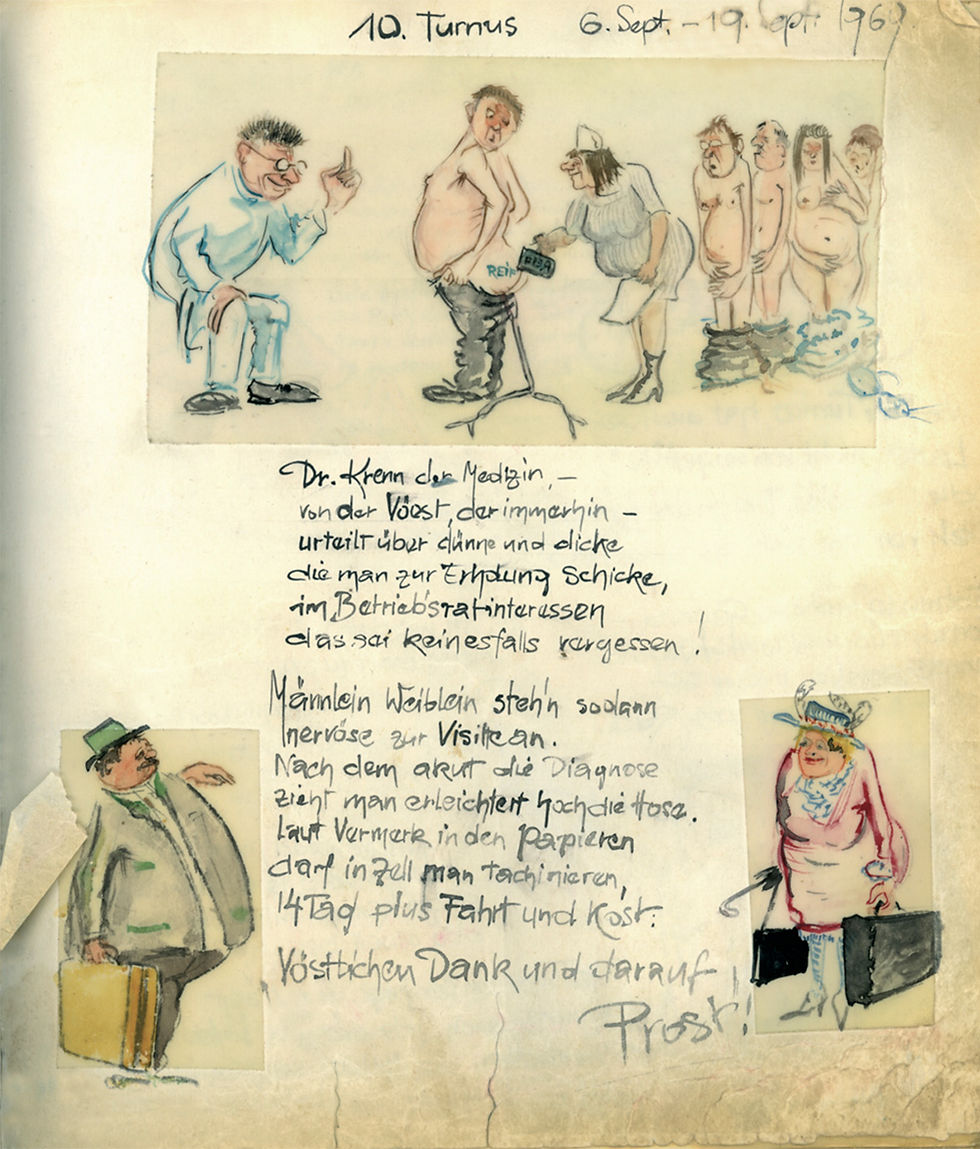 10. Turnus 6. Sept. – 19. Sept. 1969.
REIF
Dr. Krenn der Medizin, –
von der Vöest, der immerhin –
urteilt über dünne und dicke
die man zur Erholung schicke,
im Betriebsratinteressen
das sei keinesfalls vergessen!
Männlein Weiblein steh'n sodann
nervöse zur Visite an.
Nach dem akut die Diagnose
zieht man erleichtert hoch die Hose.
Laut Vermerk in den Papieren
darf in Zell man tachinieren,
14 Tag plus Fahrt und Kost.
Vöstlichen Dank und darauf
Prost!